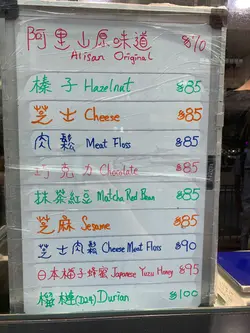 阿里山原味道 $80
Alisan Original
榛子 Hazelnut $85
芝士 Cheese $85
肉鬆 Meat Floss $85
巧克力 Chocolate $85
抹茶紅豆 Matcha Red Bean $85
芝麻 Sesame $85
芝士肉鬆 Cheese Meat Floss $90
日本柚子蜂蜜 Japanese Yuzu Honey $95
榴槤(D24) Durian $100